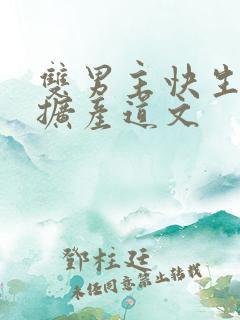 雙男主快生
擴產道文
鄧柱廷
未經同意禁止轉載